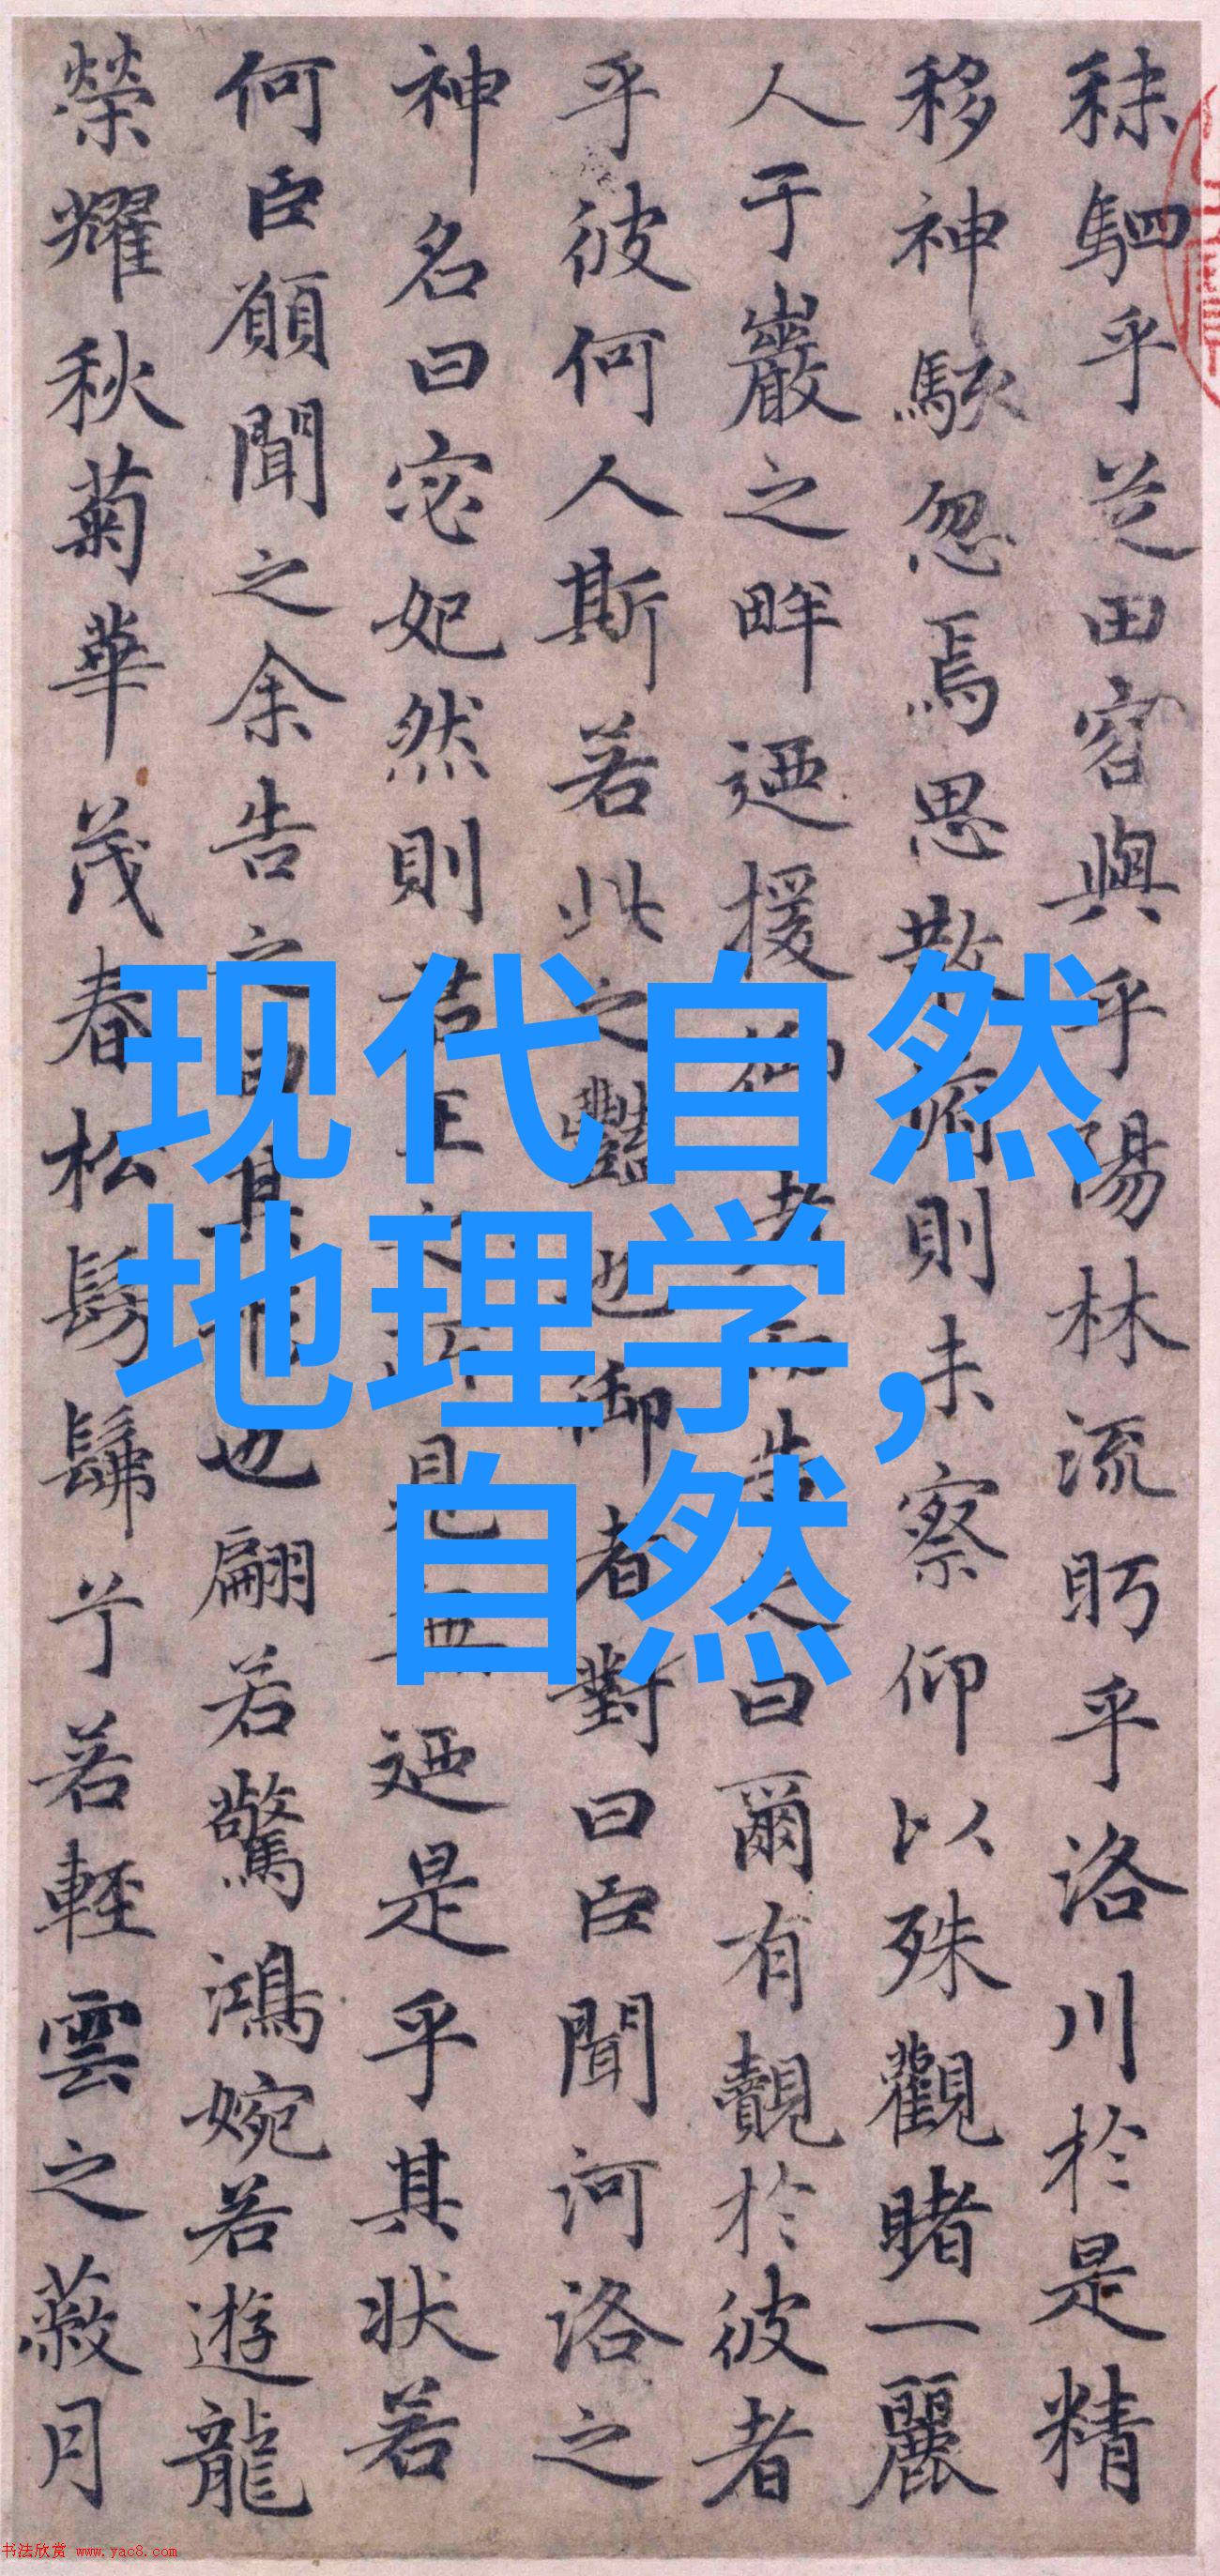 秣駟乎芝田容與乎陽林流眄乎洛川於是精
移神駭忽焉思散俯則未察仰以殊觀睹一麗
人于巖之畔迺援御者而告之曰爾有覿於彼者
乎彼何人斯若此之豔也御者對曰臣聞河洛之
神名曰宓妃然則君王之所見無迺是乎其狀若
何臣願聞之余告之曰其形也翩若驚鴻婉若遊龍
榮耀秋菊華茂春松髣髴兮若輕雲之蔽月
现代自然
地理学，
自然
书法欣赏 www.yac8.com